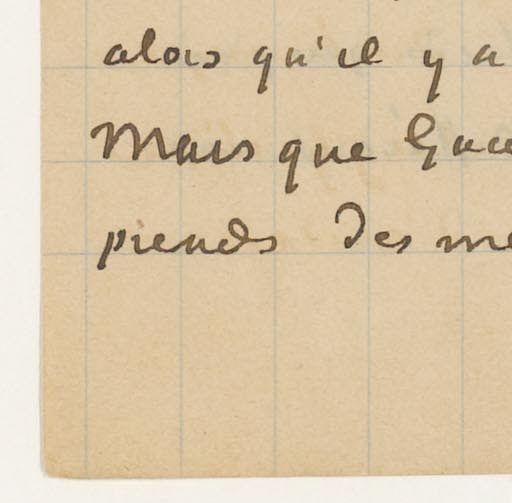 alors qu'il y a
Mais que Gau
prends des me